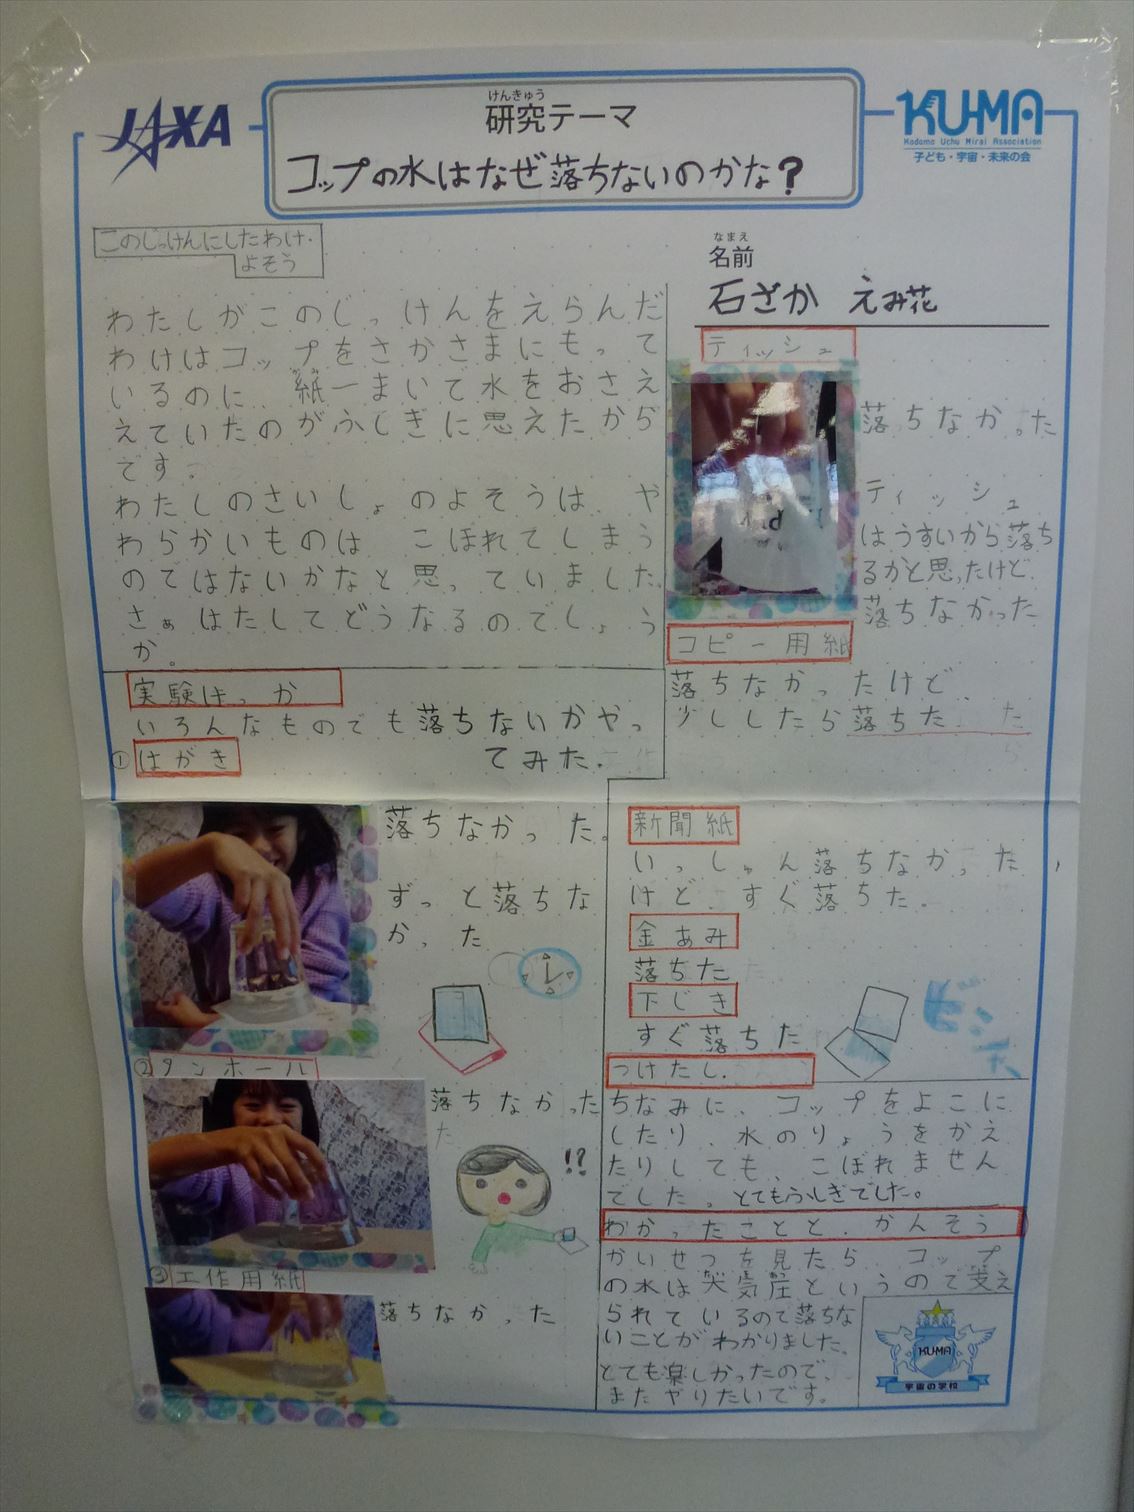 JAXA
けんきゅう
研究テーマ
コップの水はなぜ落ちないのかな?
KU-MA
Kodomo Uchu Mirai Association
子ども・宇宙・未来の会
なまえ
名前
石ざか えみ花
このじっけんにしたわけ・
よそう
わたしがこのじっけんをえらんだ
わけはコップをさかさまにもって
いるのに、紙一まいで水をおさえ
えていたのがふしぎに思えたから
です。
わたしのさいしょのよそうは、や
わらかいものは、こぼれてしまう
のではないかなと思っていました。
さぁはたしてどうなるのでしょう
か。
実験けっか
いろんなものでも落ちないかやっ
てみた。
①はがき
落ちなかった。
ずっと落ちな
かった
②ダンボール
落ちなかった
!?
③工作用紙
落ちなかった
ティッシュ
落ちなかった
ティッシュ
はうすいから落ち
るかと思ったけど、
落ちなかった
コピー用紙
落ちなかったけど、
少ししたら落ちた
新聞紙
いっしゅん落ちなかった、
けど、すぐ落ちた。
金あみ
落ちた
下じき
すぐ落ちた
つけたし.
ちなみに、コップをよこに
したり、水のりょうをかえ
たりしても、こぼれません
でした。とてもふしぎでした。
わかったことと.かんそう
かいせつを見たら、コップ
の水は大気圧というので支え
られているので落ちな
いことがわかりました。
とても楽しかったので、
またやりたいです。
KUMA
宇宙の学校